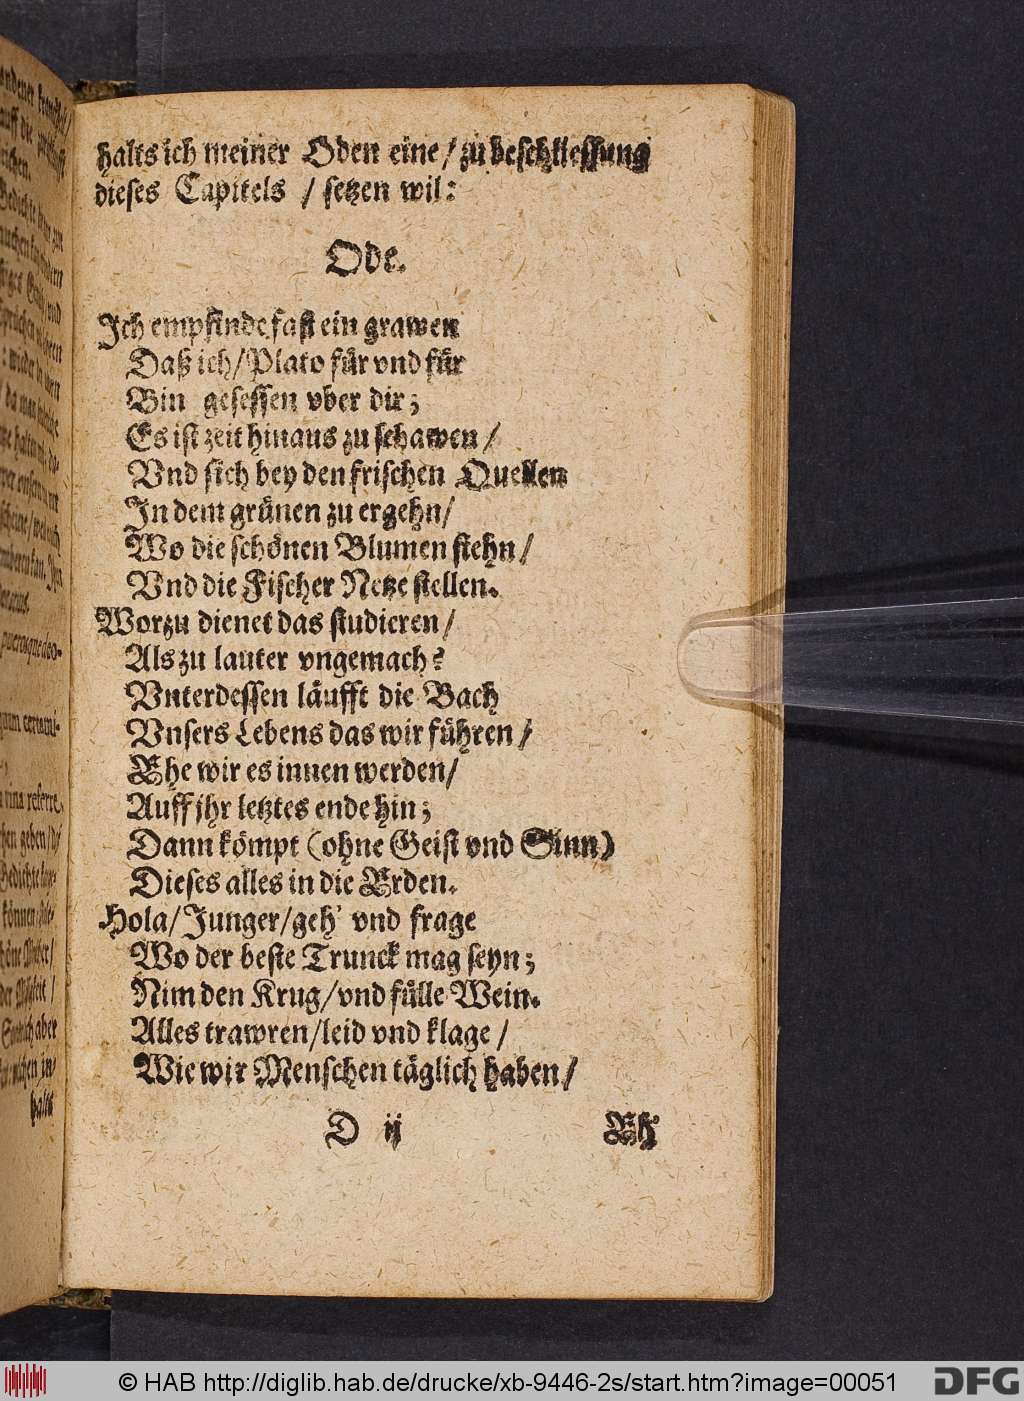 halts ich meiner Oden eine / zu beschliessung
dieses Capitels / setzen wil:
Ode.
Ich empfinde fast ein grawen
Daß ich / Plato für vnd für
Bin gesessen vber dir;
Es ist zeit hinaus zu schawen /
Vnd sich bey den frischen Quellen
In dem grünen zu ergehn /
Wo die schönen Blumen stehn /
Vnd die Fischer Netze stellen.
Worzu dienet das studieren /
Als zu lauter vngemach?
Vnterdessen läufft die Bach
Vnsers Lebens das wir führen /
Ehe wir es innen werden /
Auff jhr letztes ende hin;
Dann kömpt (ohne Geist vnd Sinn)
Dieses alles in die Erden.
Hola / Junger / geh' vnd frage
Wo der beste Trunck mag seyn;
Nim den Krug / vnd fülle Wein.
Alles trawren / leid vnd klage /
Wie wir Menschen täglich haben /
D ij Eh'
© HAB http://diglib.hab.de/drucke/xb-9446-2s/start.htm?image=00051
DFG